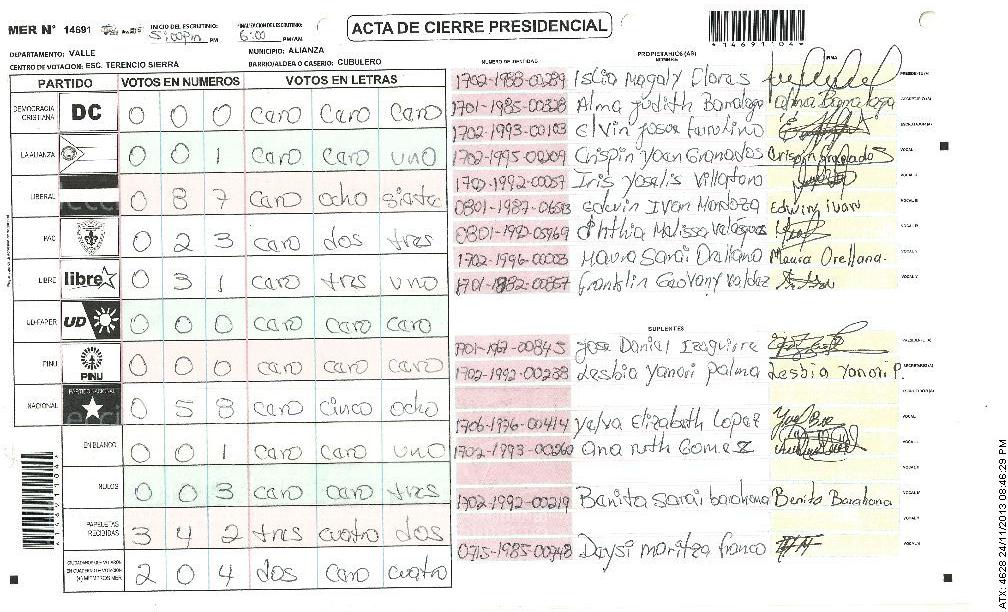 MER N° 14691
INICIO DEL ESCRUTINIO:
5:00pm PM
FINALIZACION DE ESCRUTINIO:
6:00 PM/AM
ACTA DE CIERRE PRESIDENCIAL
*14691104*
DEPARTAMENTO: VALLE
MUNICIPIO: ALIANZA
CENTRO DE VOTACION: ESC. TERENCIO SIERRA
BARRIO/ALDEA O CASERIO: CUBULERO
PARTIDO VOTOS EN NUMEROS VOTOS EN LETRAS
DEMOCRACIA CRISTIANA DC 0 0 0 caro caro caro
LA ALIANZA 0 0 1 caro caro uno
LIBERAL 0 8 7 caro ocho siete
PAC 0 2 3 caro dos tres
LIBRE libre 0 3 1 caro tres uno
UD-FAPER UD 0 0 0 caro caro caro
PINU PINU 0 0 0 caro caro caro
NACIONAL PARTIDO NACIONAL 0 5 8 caro cinco ocho
EN BLANCO 0 0 1 caro caro uno
NULOS 0 0 3 caro caro tres
PAPELETAS RECIBIDAS 3 4 2 tres cuatro dos
CIUDADANOS QUE VOTARON EN CUADERNO DE VOTACION (+) MIEMBROS MER 2 0 4 dos caro cuatro
NUMERO DE IDENTIDAD PROPIETARIOS (AS) NOMBRE FIRMA
1702-1988-00289 Magaly Flores PRESIDENTE/A
1701-1985-00328 Alma Judith
1702-1993-00103 Elvin Josue
1702-1995-00209 Crispin Yoan Granados VOCAL
1702-1992-00057 Iris Yoselis
0801-1987- Edwin Ivan Mendoza Edwin, ivan
0801-1992-05969 Melissa
1702-1996-00003 Maura Sarai Orellana Maura Orellana.
1701-1982-00857 Franklin Geovany Valdez
SUPLENTES
1701-1967-00845 Jose Daniel Izaguirre
1702-1992-00238 Lesbia Yanori Palma Lesbia Yanori P.
1706-1976-00414 Yelva Elizabeth Lopez
1702-1993-00260 Ana Ruth Gomez
1702-1992-00219 Benita Sarai barahona Benita Barahona
0715-1985-00948 Daysi maritza franco
ATX: 4628 24/11/2013 08:46:29 PM